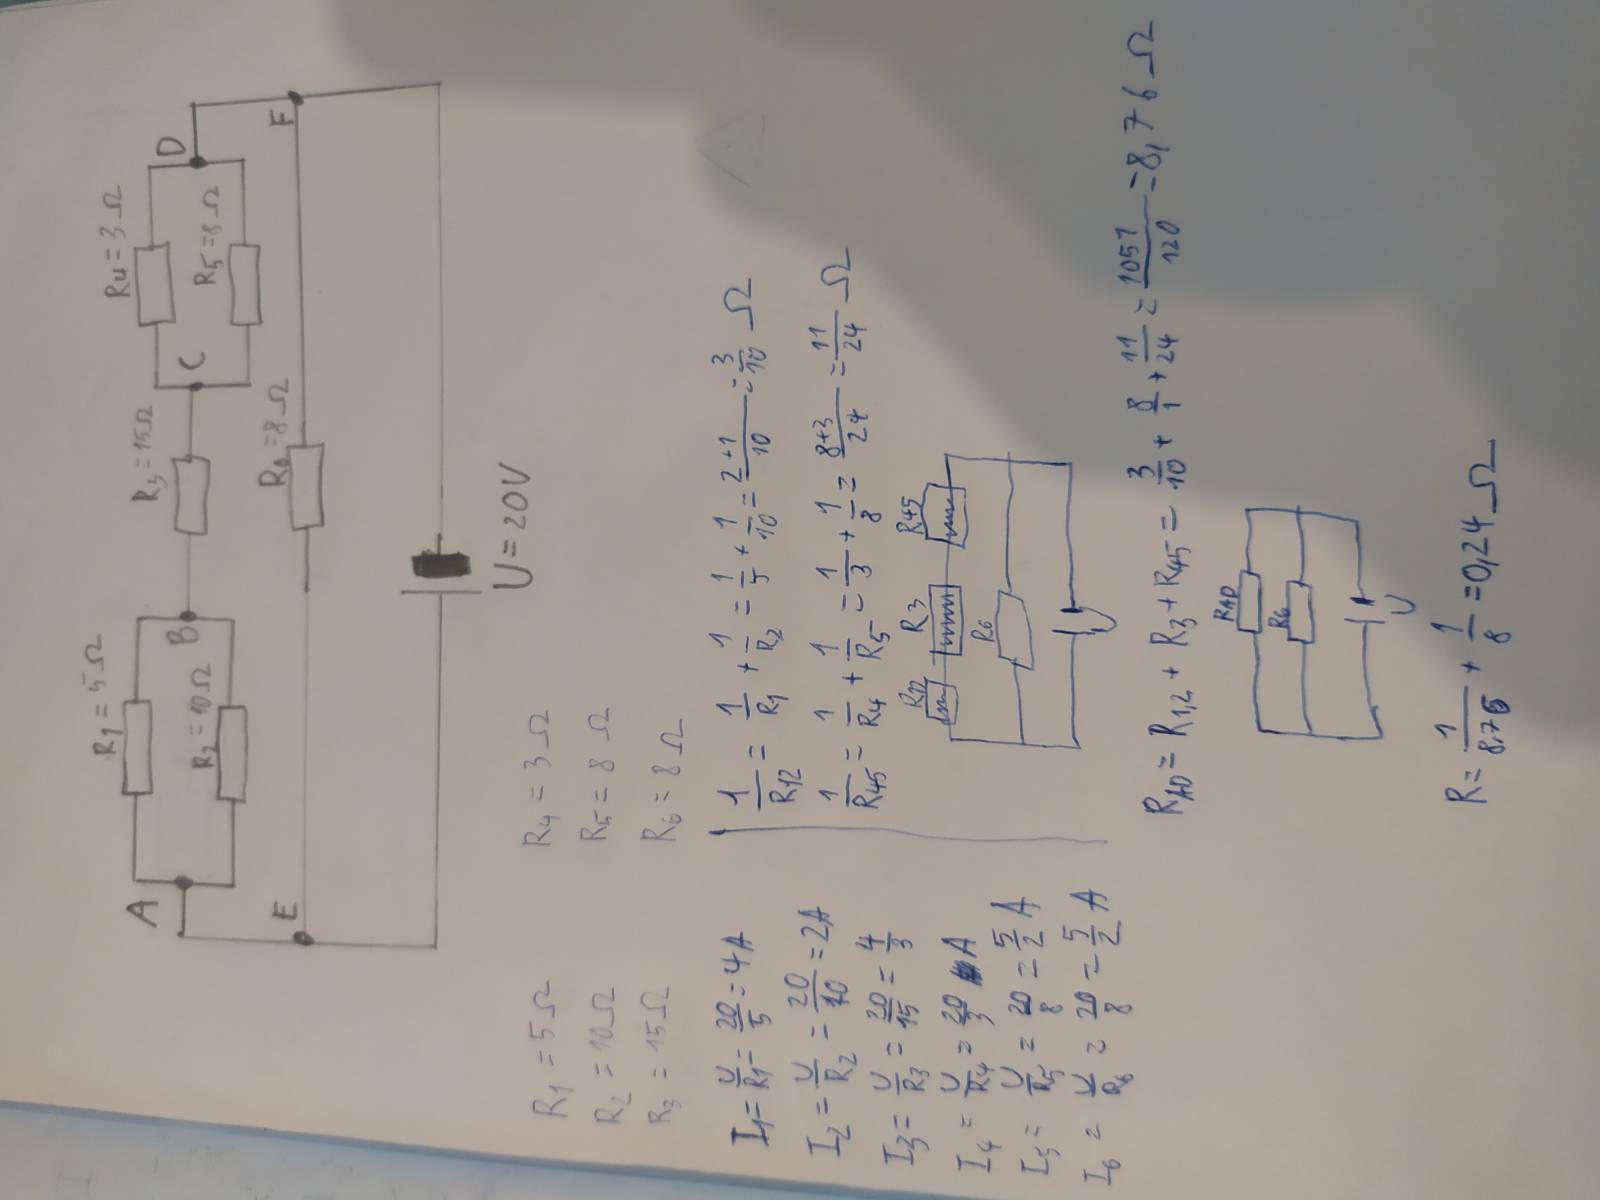 A
R1 = 5Ω
R2 = 10Ω
B
R3 = 15Ω
C
R4 = 3Ω
R5 = 8Ω
D
E
R6 = 8Ω
F
U = 20V
R1 = 5Ω
R4 = 3Ω
R2 = 10Ω
R5 = 8Ω
R3 = 15Ω
R6 = 8Ω
I1 = U/R1 = 20/5 = 4A
I2 = U/R2 = 20/10 = 2A
I3 = U/R3 = 20/15 = 4/3
I4 = U/R4 = 20/3 A
I5 = U/R5 = 20/8 = 5/2 A
I6 = U/R6 = 20/8 = 5/2 A
1/R12 = 1/R1 + 1/R2 = 1/5 + 1/10 = 2+1/10 = 3/10 Ω
1/R45 = 1/R4 + 1/R5 = 1/3 + 1/8 = 8+3/24 = 11/24 Ω
R12
R3
R45
R6
U
RAD = R1,2 + R3 + R45 = 3/10 + 8/1 + 11/24 = 1051/120 = 8,76 Ω
RAD
R6
U
R = 1/8.76 + 1/8 = 0,24 Ω